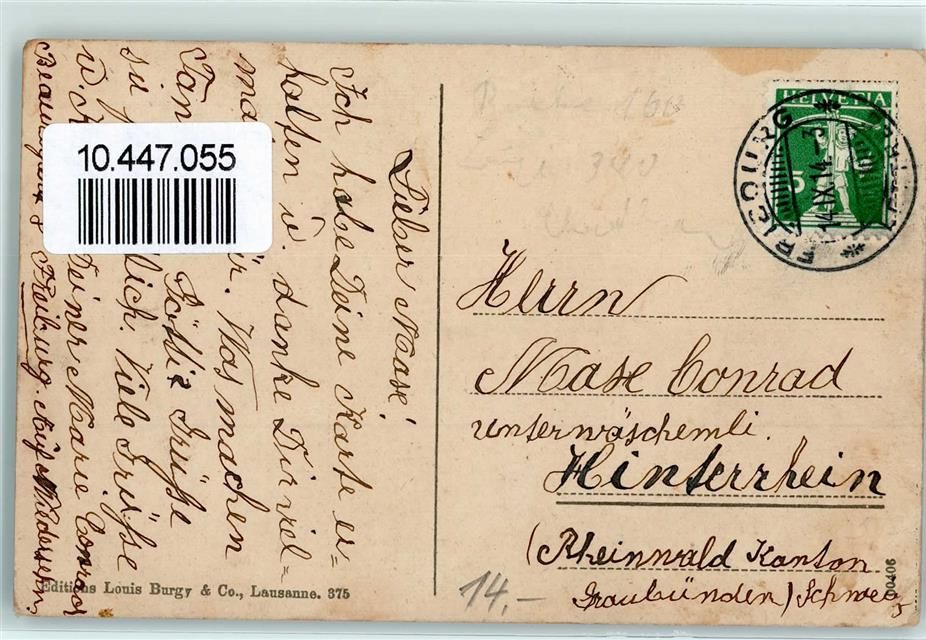 10.447.055
Lieber Mase!
Ich habe Deine Karte er=
halten u. danke Dir viel=
ma
ir. Was machen
Tan
Lottie Grüße
su
Dich. Viele Grüße
v.
Deiner Marie Conrad
Freiburg. Auf Wiedersehn
Editions Louis Burgy & Co., Lausanne. 375
HELVETIA
5
FRIBOURG
14.IX.14. 3
Herrn
Mase Conrad
unterwäschemli.
Hinterrhein
(Rheinwald Kanton
Graubünden) Schweiz
14.-
00406